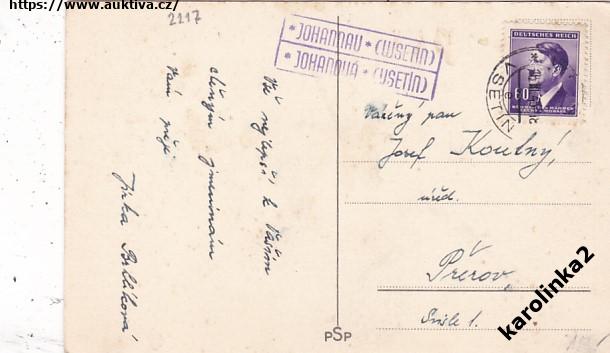 https://www.auktiva.cz/
2217
* JOHANNAU * (WSETIN)
* JOHANOVÁ * (VSETÍN)
DEUTSCHES REICH
60
VSETÍN
Vše nejlepší k Vašim
slavným jmeninám
Vám přeje
Jirka
Vážený pan
Josef Koutný,
úřed.
Přerov,
1.
PSP
karolinka2